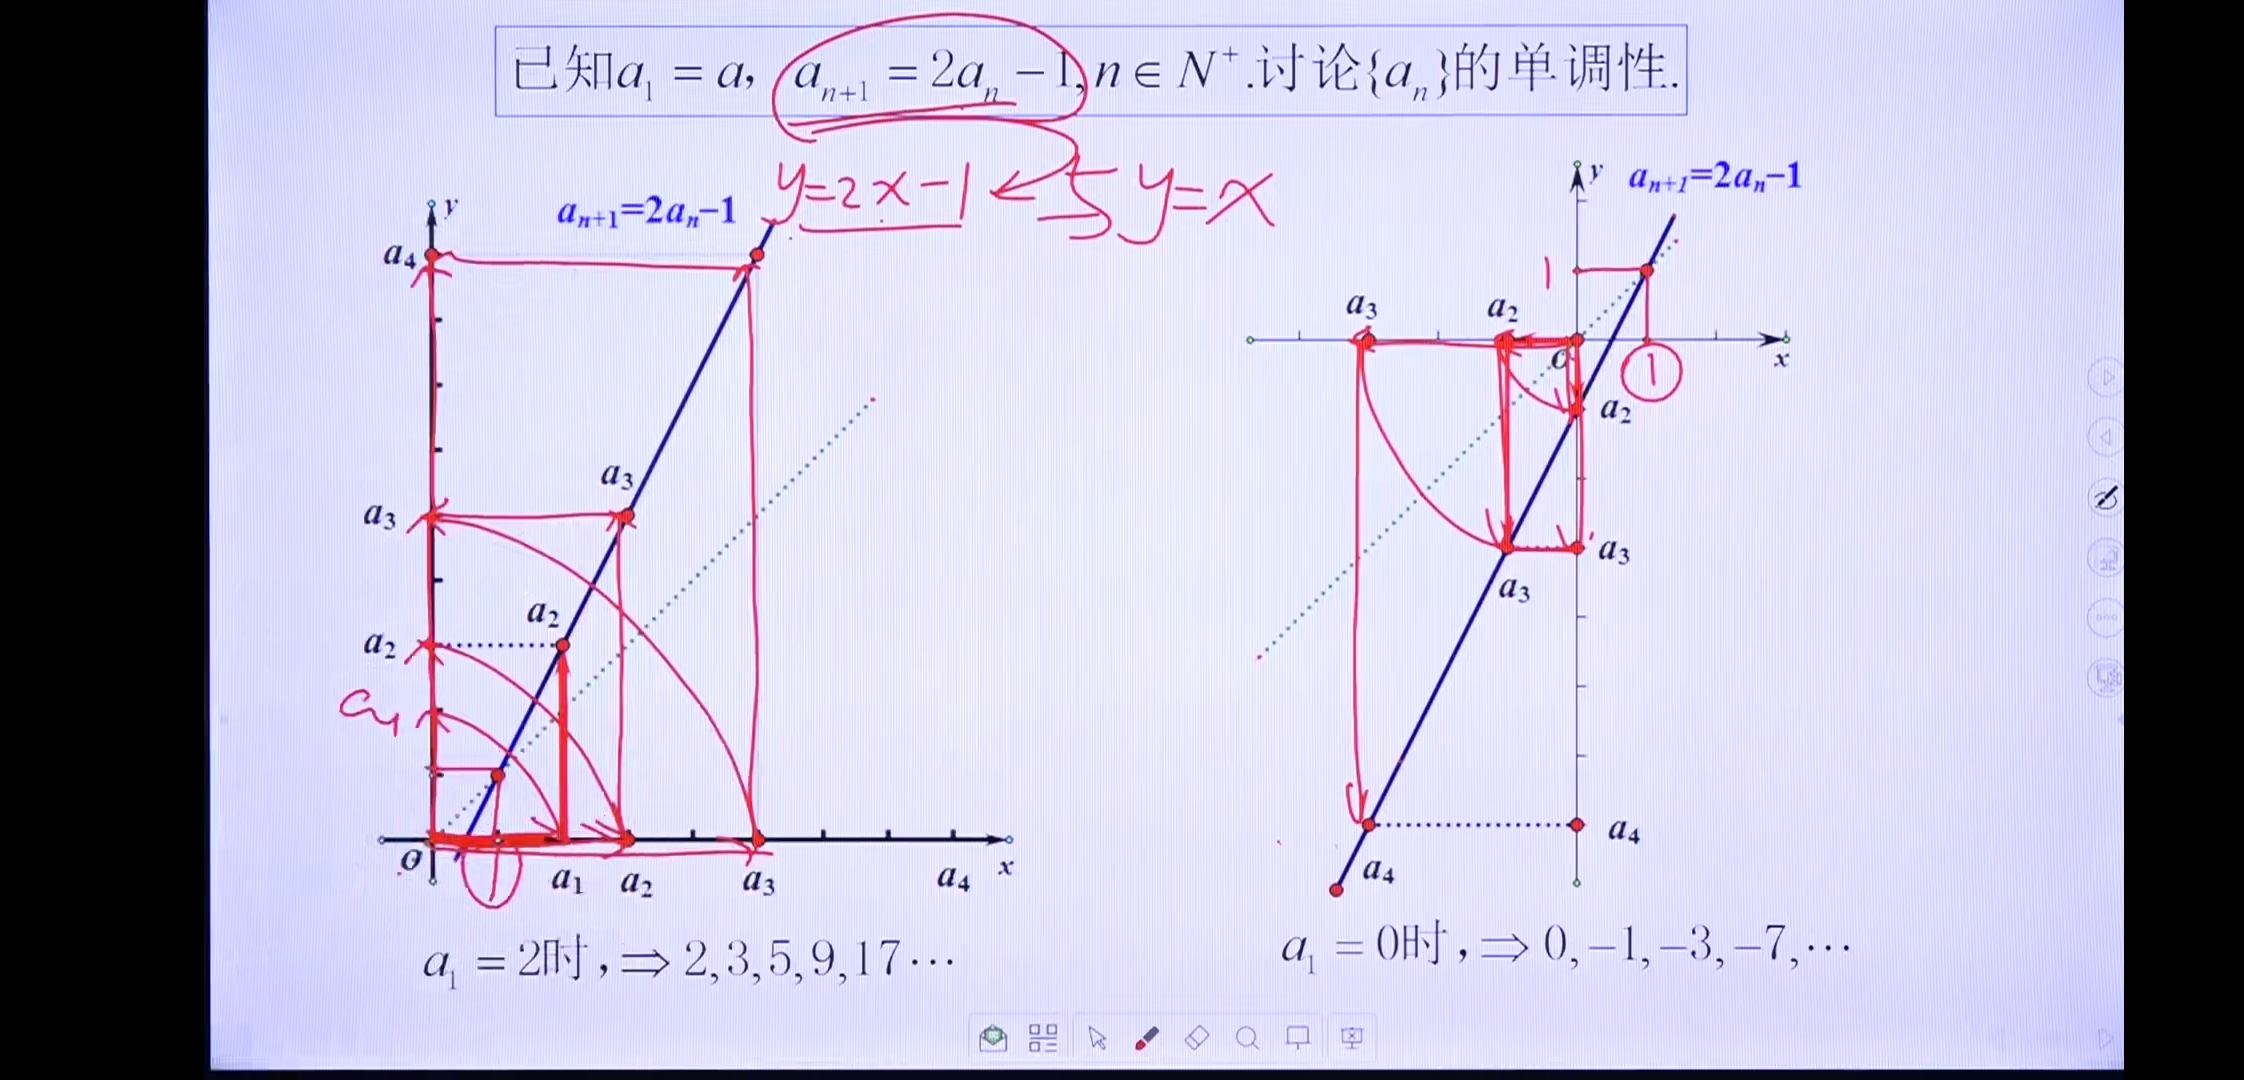 已知a₁ = a, aₙ₊₁ = 2aₙ − 1, n ∈ N⁺.讨论{aₙ}的单调性.
y=2x−1 ← 与 y=x
aₙ₊₁=2aₙ−1
y
a₄
a₃
a₃
a₂
a₂
a₁
O
1
a₁
a₂
a₃
a₄
x
a₁ = 2时, ⇒ 2,3,5,9,17⋯
y
aₙ₊₁=2aₙ−1
1
a₃
a₂
O
1
x
a₂
a₃
a₃
a₄
a₄
a₁ = 0时, ⇒ 0,−1,−3,−7,⋯